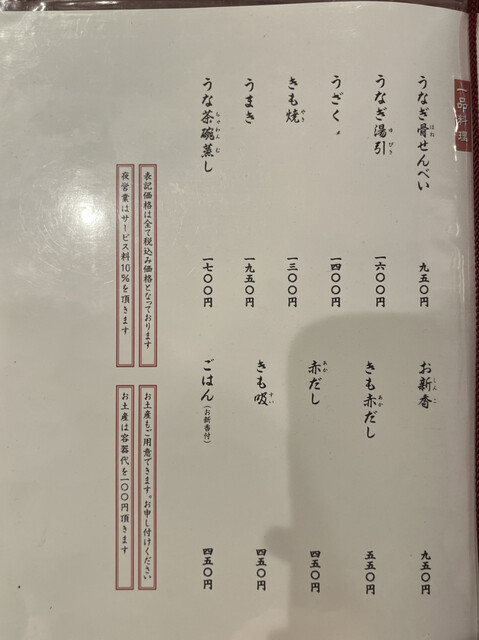 一品料理
うなぎ骨せんべい 九五〇円
うなぎ湯引 一六〇〇円
うざく 一四〇〇円
きも焼 一三〇〇円
うまき 一九五〇円
うな茶碗蒸し 一七〇〇円
お新香 九五〇円
きも赤だし 五五〇円
赤だし 四五〇円
きも吸 四五〇円
ごはん(お新香付) 四五〇円
表記価格は全て税込み価格となっております
夜営業はサービス料10%を頂きます
お土産もご用意できます。お申し付けください
お土産は容器代を一〇〇円頂きます